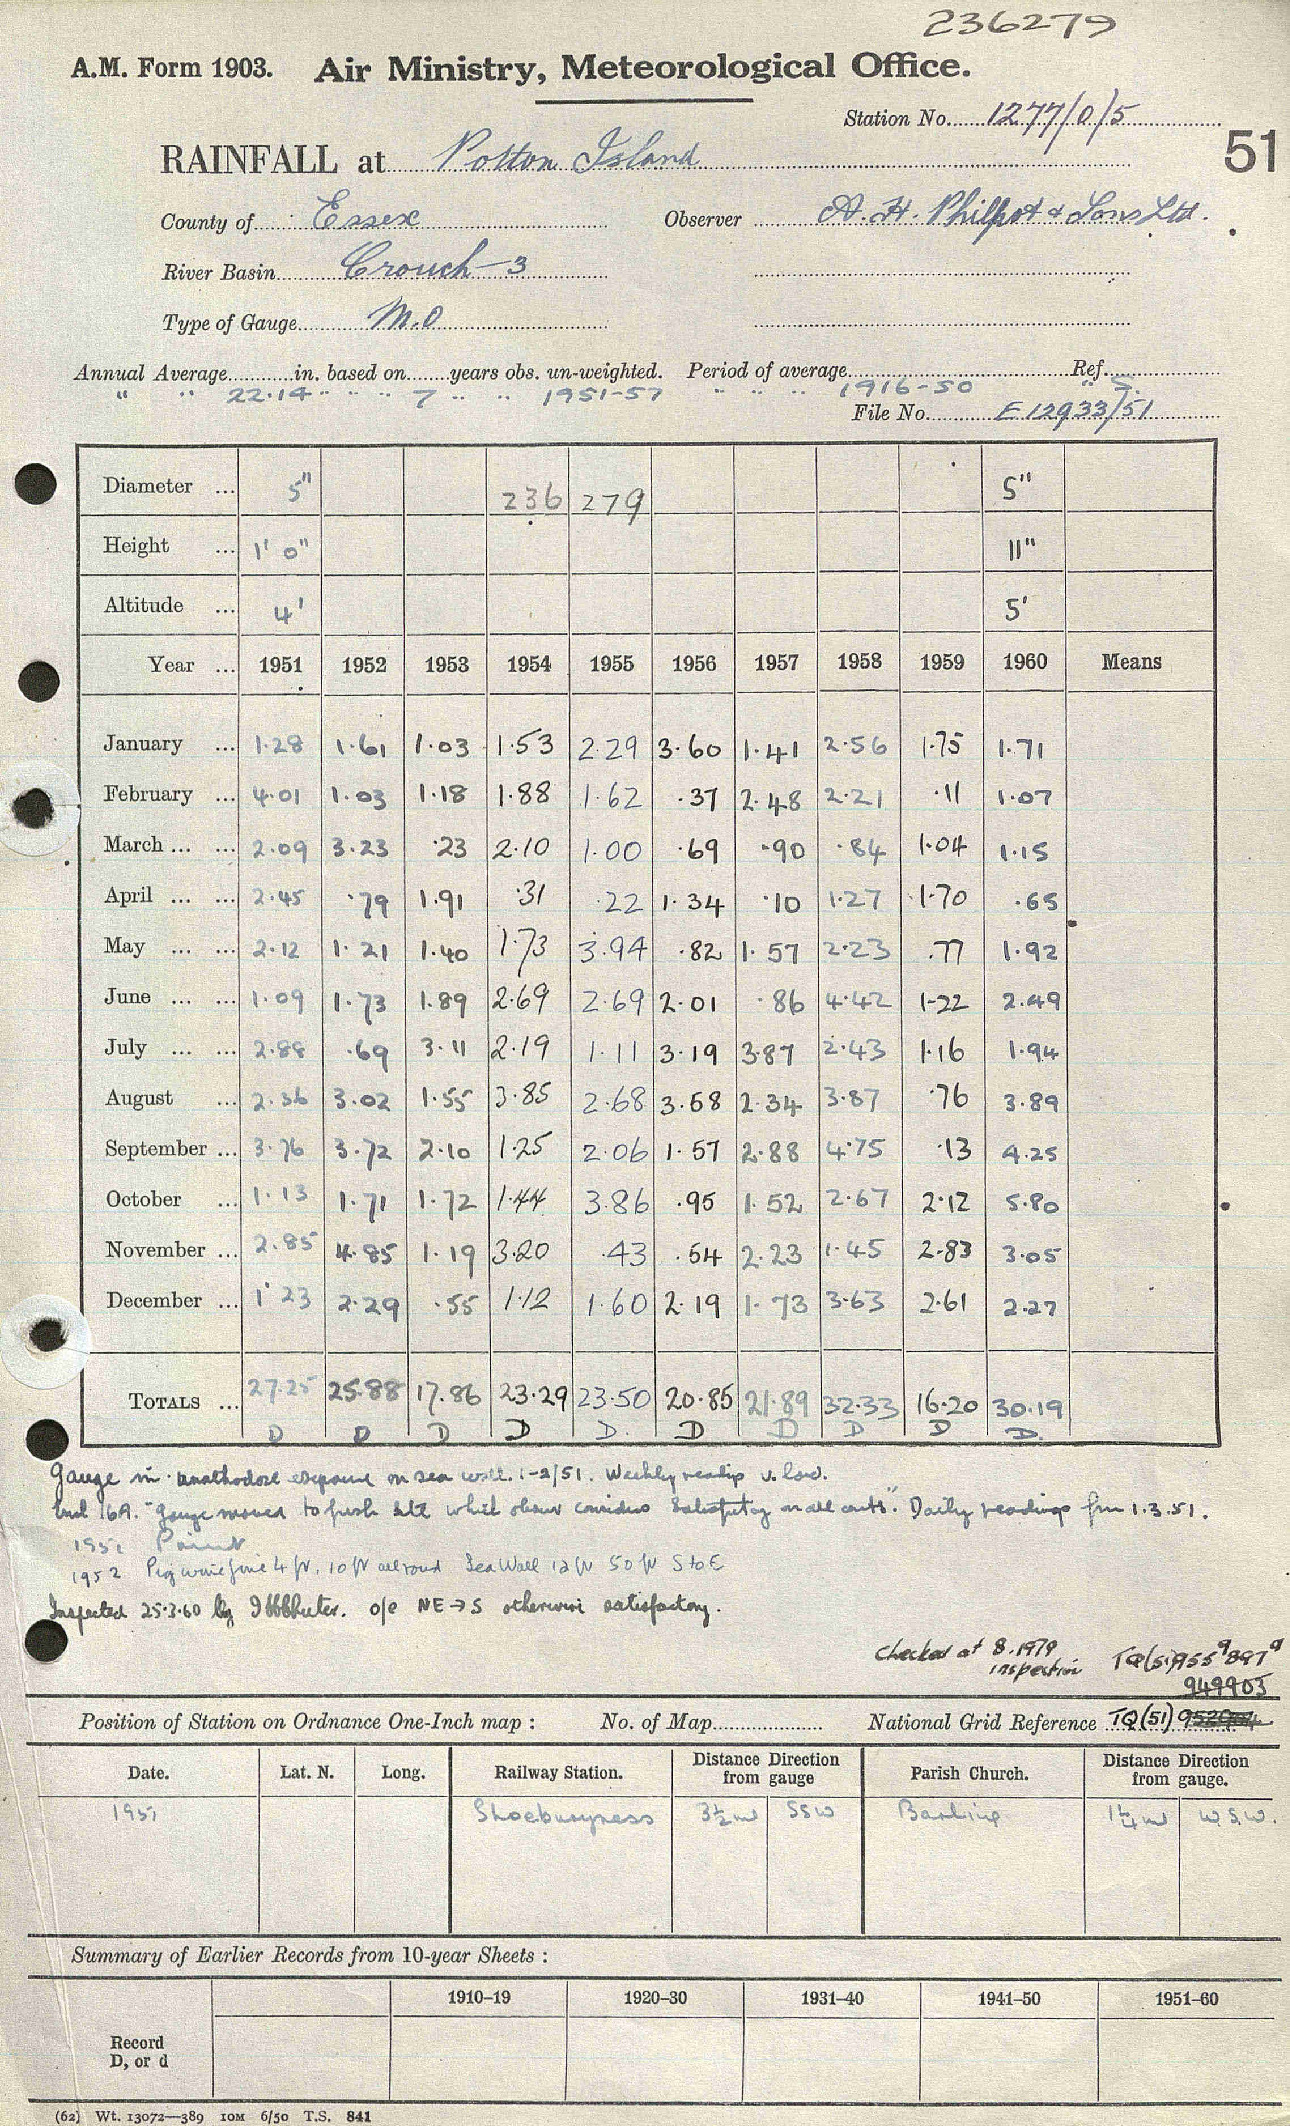 236279
A.M. Form 1903. Air Ministry, Meteorological Office.
Station No. 1277/0/5
51
RAINFALL at Potton Island
County of Essex Observer A. H. Philpot & Sons Ltd.
River Basin Crouch-3
Type of Gauge M.O
Annual Average in. based on years obs. un-weighted. Period of average Ref.
" " 22.14 " " " 7 " " 1951-57 " " " 1916-50 " S.
File No. E12933/51
Diameter ... 5" 236 279 5"
Height ... 1' 0" 11"
Altitude ... 4' 5'
Year ... 1951 1952 1953 1954 1955 1956 1957 1958 1959 1960 Means
January ... 1.28 1.61 1.03 1.53 2.29 3.60 1.41 2.56 1.75 1.71
February ... 4.01 1.03 1.18 1.88 1.62 .37 2.48 2.21 .11 1.07
March ... ... 2.09 3.23 .23 2.10 1.00 .69 .90 .84 1.04 1.15
April ... ... 2.45 .79 1.91 .31 .22 1.34 .10 1.27 1.70 .65
May ... ... 2.12 1.21 1.40 1.73 3.94 .82 1.57 2.23 .77 1.92
June ... ... 1.09 1.73 1.89 2.69 2.69 2.01 .86 4.42 1.22 2.49
July ... ... 2.88 .69 3.11 2.19 1.11 3.19 3.87 2.43 1.16 1.94
August ... 2.36 3.02 1.55 3.85 2.68 3.58 2.34 3.87 .76 3.89
September ... 3.76 3.72 2.10 1.25 2.06 1.57 2.88 4.75 .13 4.25
October ... 1.13 1.71 1.72 1.44 3.86 .95 1.52 2.67 2.12 5.80
November ... 2.85 4.85 1.19 3.20 .43 .54 2.23 1.45 2.83 3.05
December ... 1.23 2.29 .55 1.12 1.60 2.19 1.73 3.63 2.61 2.27
TOTALS ... 27.25 25.88 17.86 23.29 23.50 20.85 21.89 32.33 16.20 30.19
D D D D D. D D D D D.
Gauge in unorthodox exposure on sea wall. 1-2/51. Weekly readings v. low.
"Gauge moved to fresh site which observer considers satisfactory on all counts". Daily readings from 1.3.51.
1951
1952 Pig wire fence 4 ft. 10 ft all round Sea Wall 12 ft 50 ft S to E
Inspected 25.3.60 by o/e NE→S otherwise satisfactory.
Checked at 8.1979 inspection TQ(51)955⁹897⁹
949903
Position of Station on Ordnance One-Inch map : No. of Map National Grid Reference TQ(51)
Date. Lat. N. Long. Railway Station. Distance from gauge Direction Parish Church. Distance from gauge. Direction
1951 Shoeburyness 3½m SSW Barling 1¼m W.S.W.
Summary of Earlier Records from 10-year Sheets :
1910–19 1920–30 1931–40 1941–50 1951–60
Record
D, or d
(62) Wt. 13072—389 10M 6/50 T.S. 841